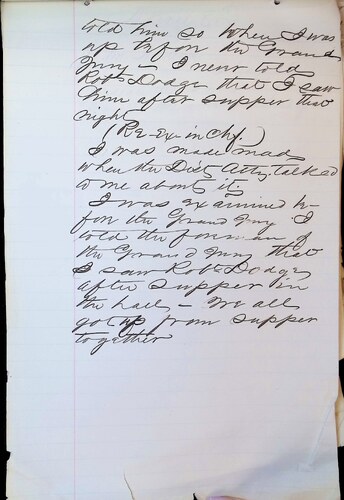 told him so when I was
up before the Grand
Jury — I never told
Robt Dodge that I saw
him after supper that
night
(Re-Ex-in Chf.)
I was made mad
when the Dist Atty. talked
to me about it.
I was examined be-
fore the Grand Jury I
told the foreman of
the Grand Jury that
I saw Robt Dodge
after supper in
the hall — We all
got up from supper
together